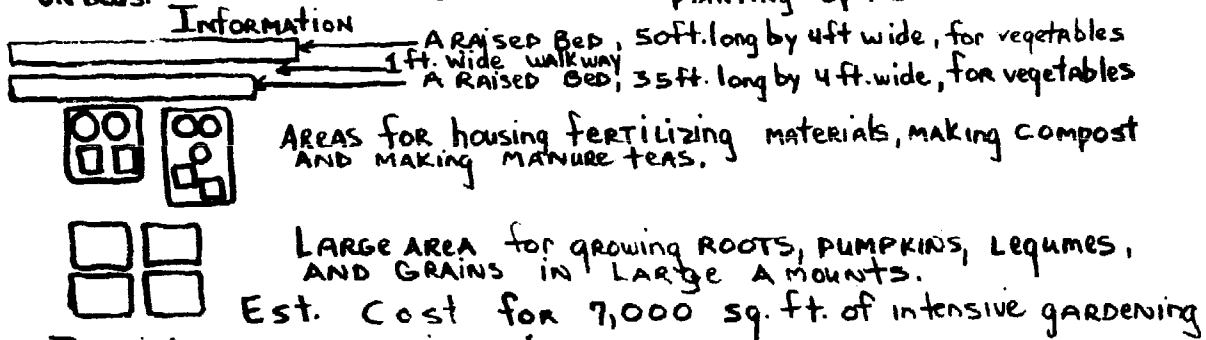 INFORMATION
A RAISED BED, 50ft. long by 4ft wide, for vegetables
1 ft. wide WALKWAY
A RAISED BED, 35ft. long by 4 ft. wide, for vegetables
AREAS for housing fERTILIZING MATERIALS, MAKING COMPOST
AND MAKING MANURE TEAS.
LARGE AREA for growing ROOTS, PUMPKINS, LEGUMES,
AND GRAINS IN LARGE AMOUNTS.
Est. Cost for 7,000 sq. ft. of intensive GARDENING